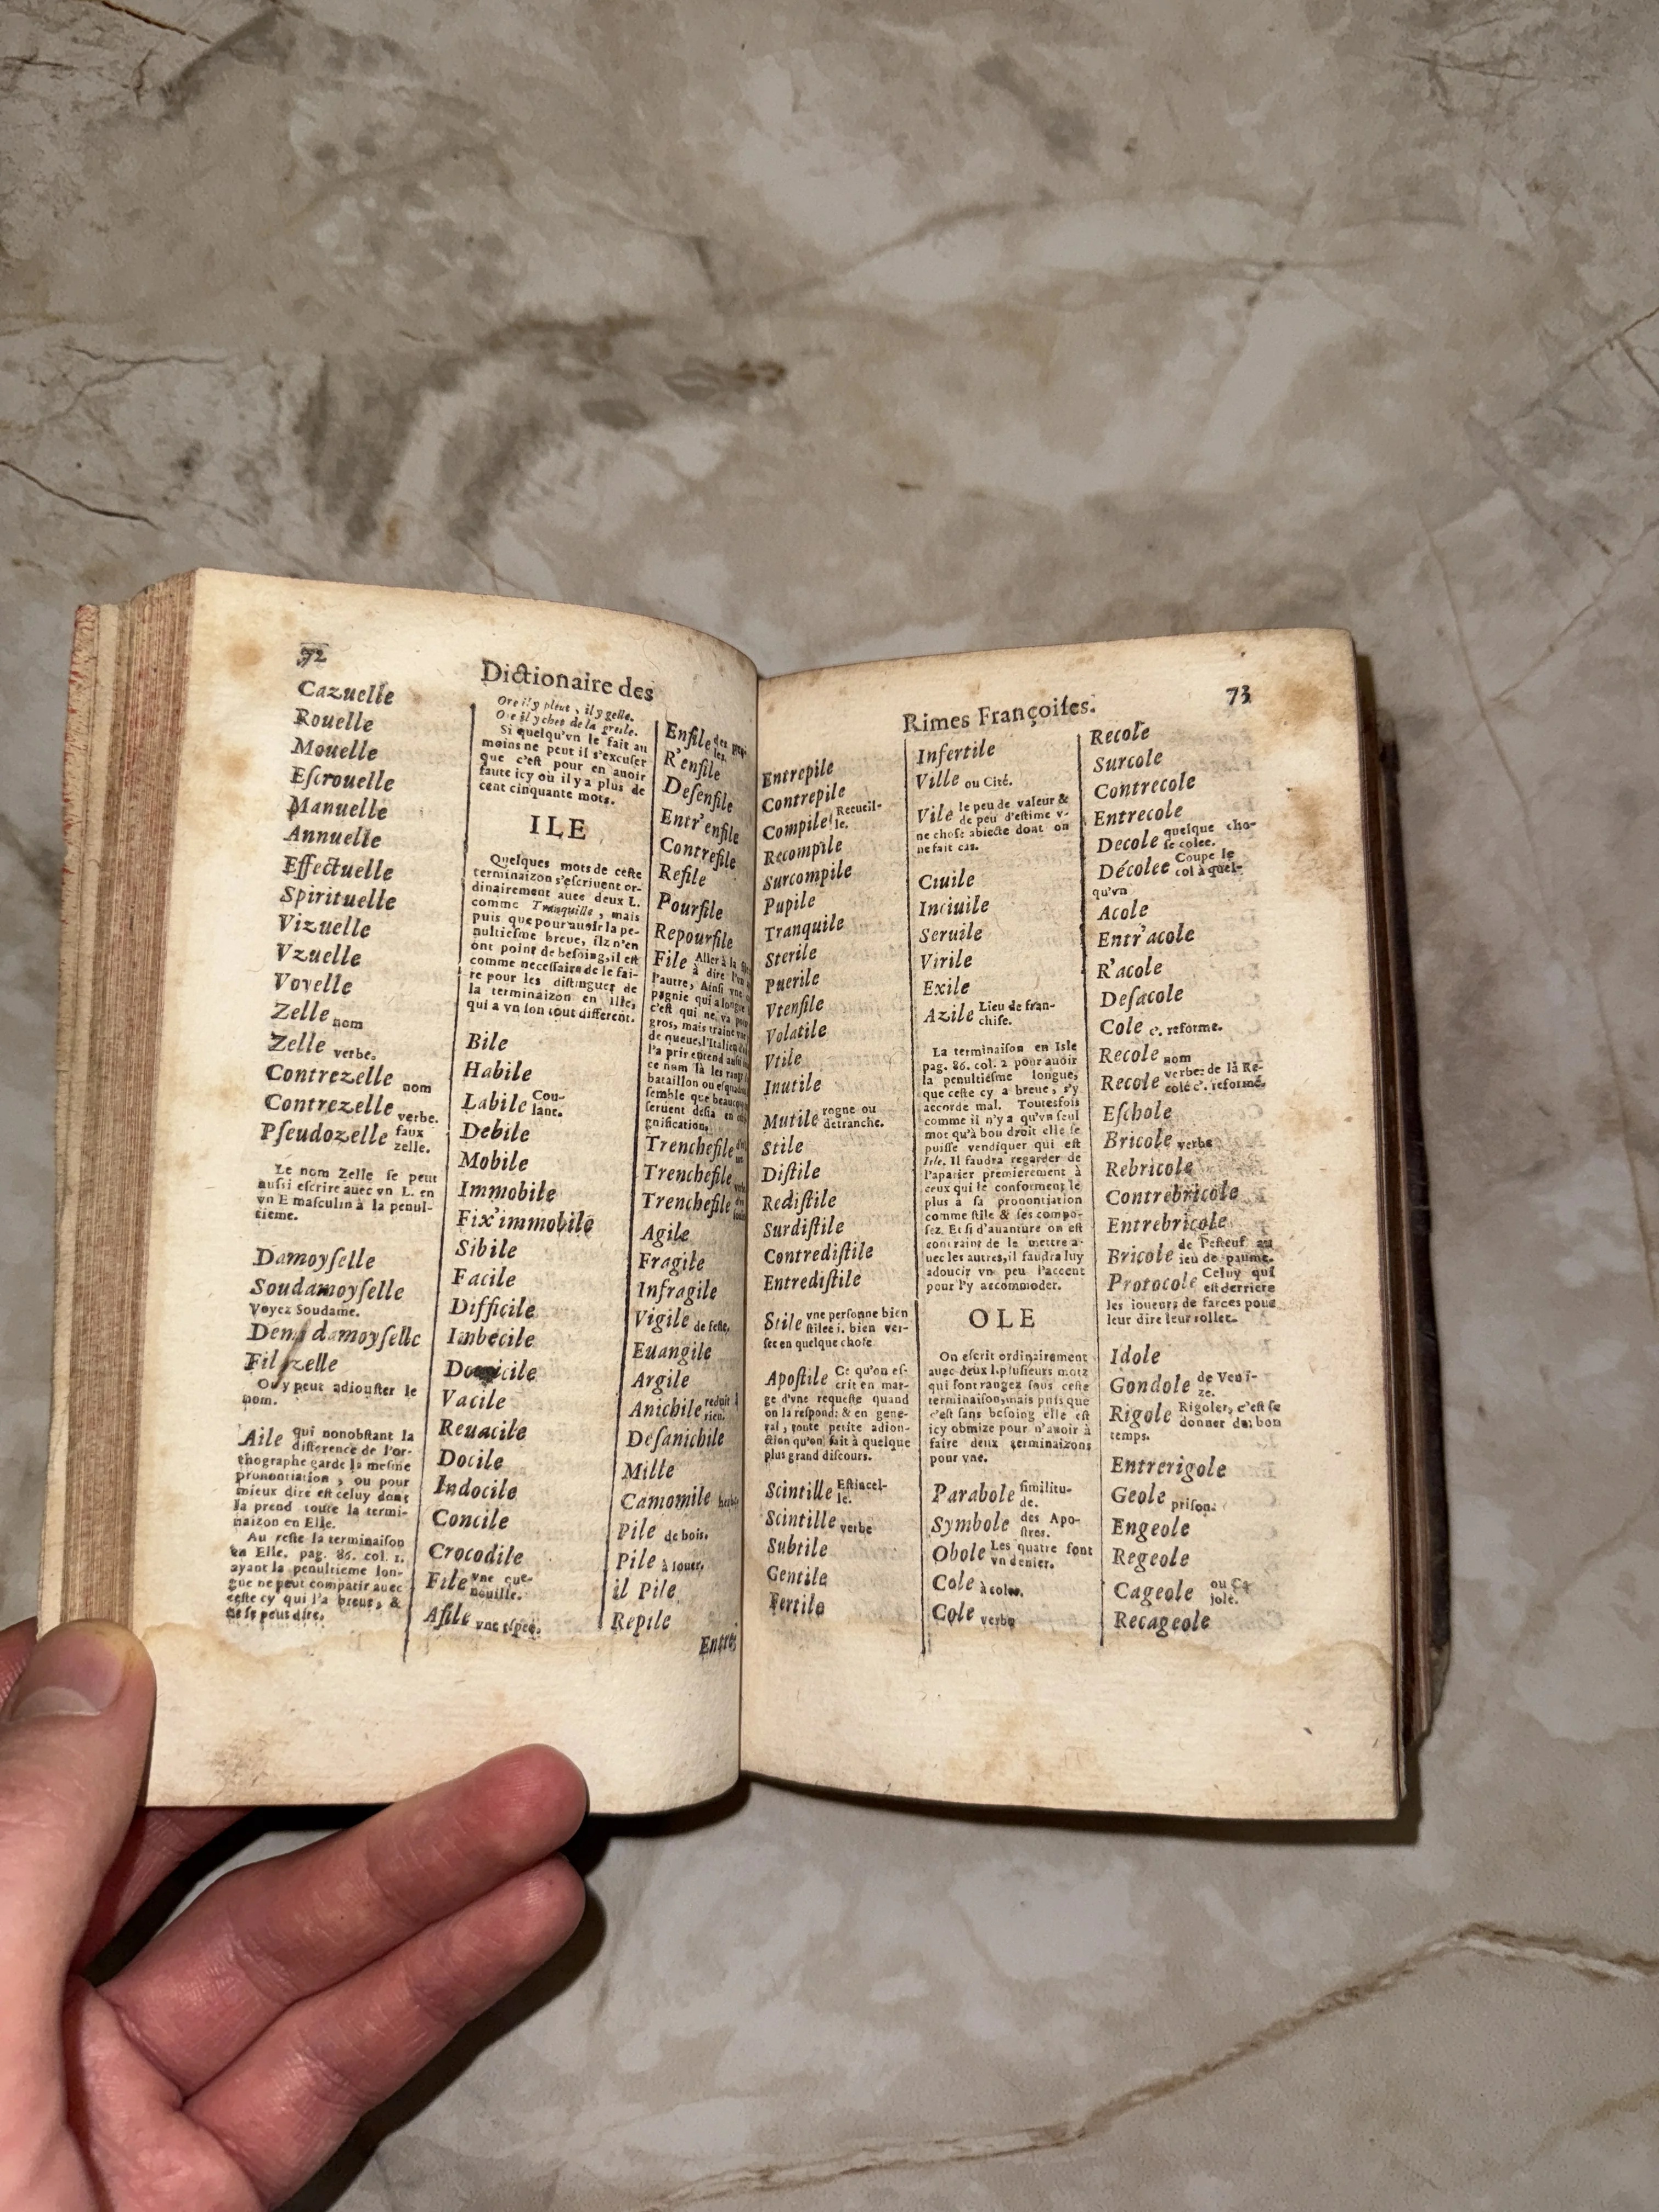 72
Dictionaire des
Cazuelle
Rouelle
Mouelle
Eſcrouelle
Manuelle
Annuelle
Effectuelle
Spirituelle
Vizuelle
Vzuelle
Voyelle
Zelle nom
Zelle verbe.
Contrezelle nom
Contrezelle verbe.
Pſeudozelle faux
zelle.
Le nom Zelle ſe peut
auſſi eſcrire auec vn L. en
vn E maſculin à la penul-
tieme.
Damoyſelle
Soudamoyſelle
Voyez Soudame.
damoyſelle
On y peut adiouſter le
nom.
Aile qui nonobſtant la
difference de l'or-
thographe garde la meſme
pronontiation, ou pour
mieux dire eſt celuy dont
la prend toute la termi-
naizon en Elle.
Au reſte la terminaiſon
en Elle. pag. 86. col. 1.
ayant la penultieme lon-
gue ne peut compatir auec
ceſte cy qui l'a breue, &
ne ſe peut dire.
Ore il y pleut, il y gelle.
Ore il y chet de la greſle.
Si quelqu'vn le fait au
moins ne peut il s'excuſer
que c'eſt pour en auoir
faute icy où il y a plus de
cent cinquante mots.
ILE
Quelques mots de ceſte
terminaizon s'eſcriuent or-
dinairement auec deux L.
comme Tranquille, mais
puis que pour auoir la pe-
nultieſme breue, ilz n'en
ont point de beſoing, il eſt
comme neceſſaire de le fai-
re pour les diſtinguer de
la terminaizon en ille,
qui a vn ſon tout different.
Bile
Habile
Labile Cou-
lant.
Debile
Mobile
Immobile
Fix'immobile
Sibile
Facile
Difficile
Imbecile
Domicile
Vacile
Reuacile
Docile
Indocile
Concile
Crocodile
File vne que-
nouille.
Afile vne eſpee.
Enfile
R'enfile
Deſenfile
Entr'enfile
Contrefile
Refile
Pourfile
Repourfile
File Aller à la
à dire l'vn
l'autre, Ainſi vne
pagnie qui a longue
c'eſt qui ne va
gros, mais traine
de queue, l'Italien
l'a pris
ce nom là les
bataillon ou
ſemble que
ſeruent deſia en
gnification.
Trenchefile
Trenchefile
Trenchefile
Agile
Fragile
Infragile
Vigile de feſte.
Euangile
Argile
Anichile reduit à
rien.
Deſanichile
Mille
Camomile herbe
Pile de bois.
Pile à iouer.
il Pile
Repile
Entre
Rimes Françoiſes.
73
Entrepile
Contrepile
Compile Recueil-
le.
Recompile
Surcompile
Pupile
Tranquile
Sterile
Puerile
Vtenſile
Volatile
Vtile
Inutile
Mutile rogne ou
detranche.
Stile
Diſtile
Rediſtile
Surdiſtile
Contrediſtile
Entrediſtile
Stile vne perſonne bien
ſtilee i. bien ver-
ſee en quelque choſe
Apoſtile Ce qu'on eſ-
crit en mar-
ge d'vne requeſte quand
on la reſpond: & en gene-
ral, toute petite adion-
ction qu'on fait à quelque
plus grand diſcours.
Scintille Eſtincel-
le.
Scintille verbe
Subtile
Gentile
Fertile
Infertile
Ville ou Cité.
Vile le peu de valeur &
de peu d'eſtime v-
ne choſe abiecte dont on
ne fait cas.
Ciuile
Inciuile
Seruile
Virile
Exile
Azile Lieu de fran-
chiſe.
La terminaiſon en Isle
pag. 86. col. 2 pour auoir
la penultieſme longue,
que ceſte cy a breue, s'y
accorde mal. Toutesfois
comme il n'y a qu'vn ſeul
mot qu'à bon droit elle ſe
puiſſe vendiquer qui eſt
Iſle. Il faudra regarder de
l'aparier premierement à
ceux qui ſe conforment le
plus à ſa prononciation
comme ſtile & ſes compo-
ſez. Et ſi d'auanture on eſt
contraint de le mettre a-
uec les autres, il faudra luy
adoucir vn peu l'accent
pour l'y accommoder.
OLE
On eſcrit ordinairement
auec deux l. pluſieurs motz
qui ſont rangez ſous ceſte
terminaiſon, mais puis que
c'eſt ſans beſoing elle eſt
icy obmize pour n'auoir à
faire deux terminaizons
pour vne.
Parabole ſimilitu-
de.
Symbole des Apo-
ſtres.
Obole Les quatre font
vn denier.
Cole à coler.
Cole verbe
Recole
Surcole
Contrecole
Entrecole
Decole quelque cho-
ſe colee.
Décolee Coupe le
col à quel-
qu'vn
Acole
Entr'acole
R'acole
Deſacole
Cole c. reforme.
Recole nom
Recole verbe: de là Re-
colé c. reformé.
Eſchole
Bricole verbe
Rebricole
Contrebricole
Entrebricole
Bricole de l'eſteuf au
ieu de paume.
Protocole Celuy qui
eſt derriere
les ioueurs de farces pour
leur dire leur rollet.
Idole
Gondole de Veni-
ze.
Rigole Rigoler, c'eſt ſe
donner du bon
temps.
Entrerigole
Geole priſon.
Engeole
Regeole
Cageole ou Ca
jole.
Recageole